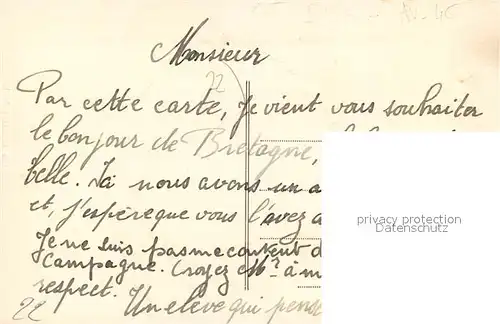 Av. 46
Monsieur
22
Par cette carte, je vient vous souhaiter
le bonjour de Bretagne,
belle. Ici nous avons un a
et, j'espère que vous l'avez a
Je ne suis pas mecontent d
Campagne. Croyez Mr. à m
respect.
Un eleve qui pense
22
privacy protection
Datenschutz